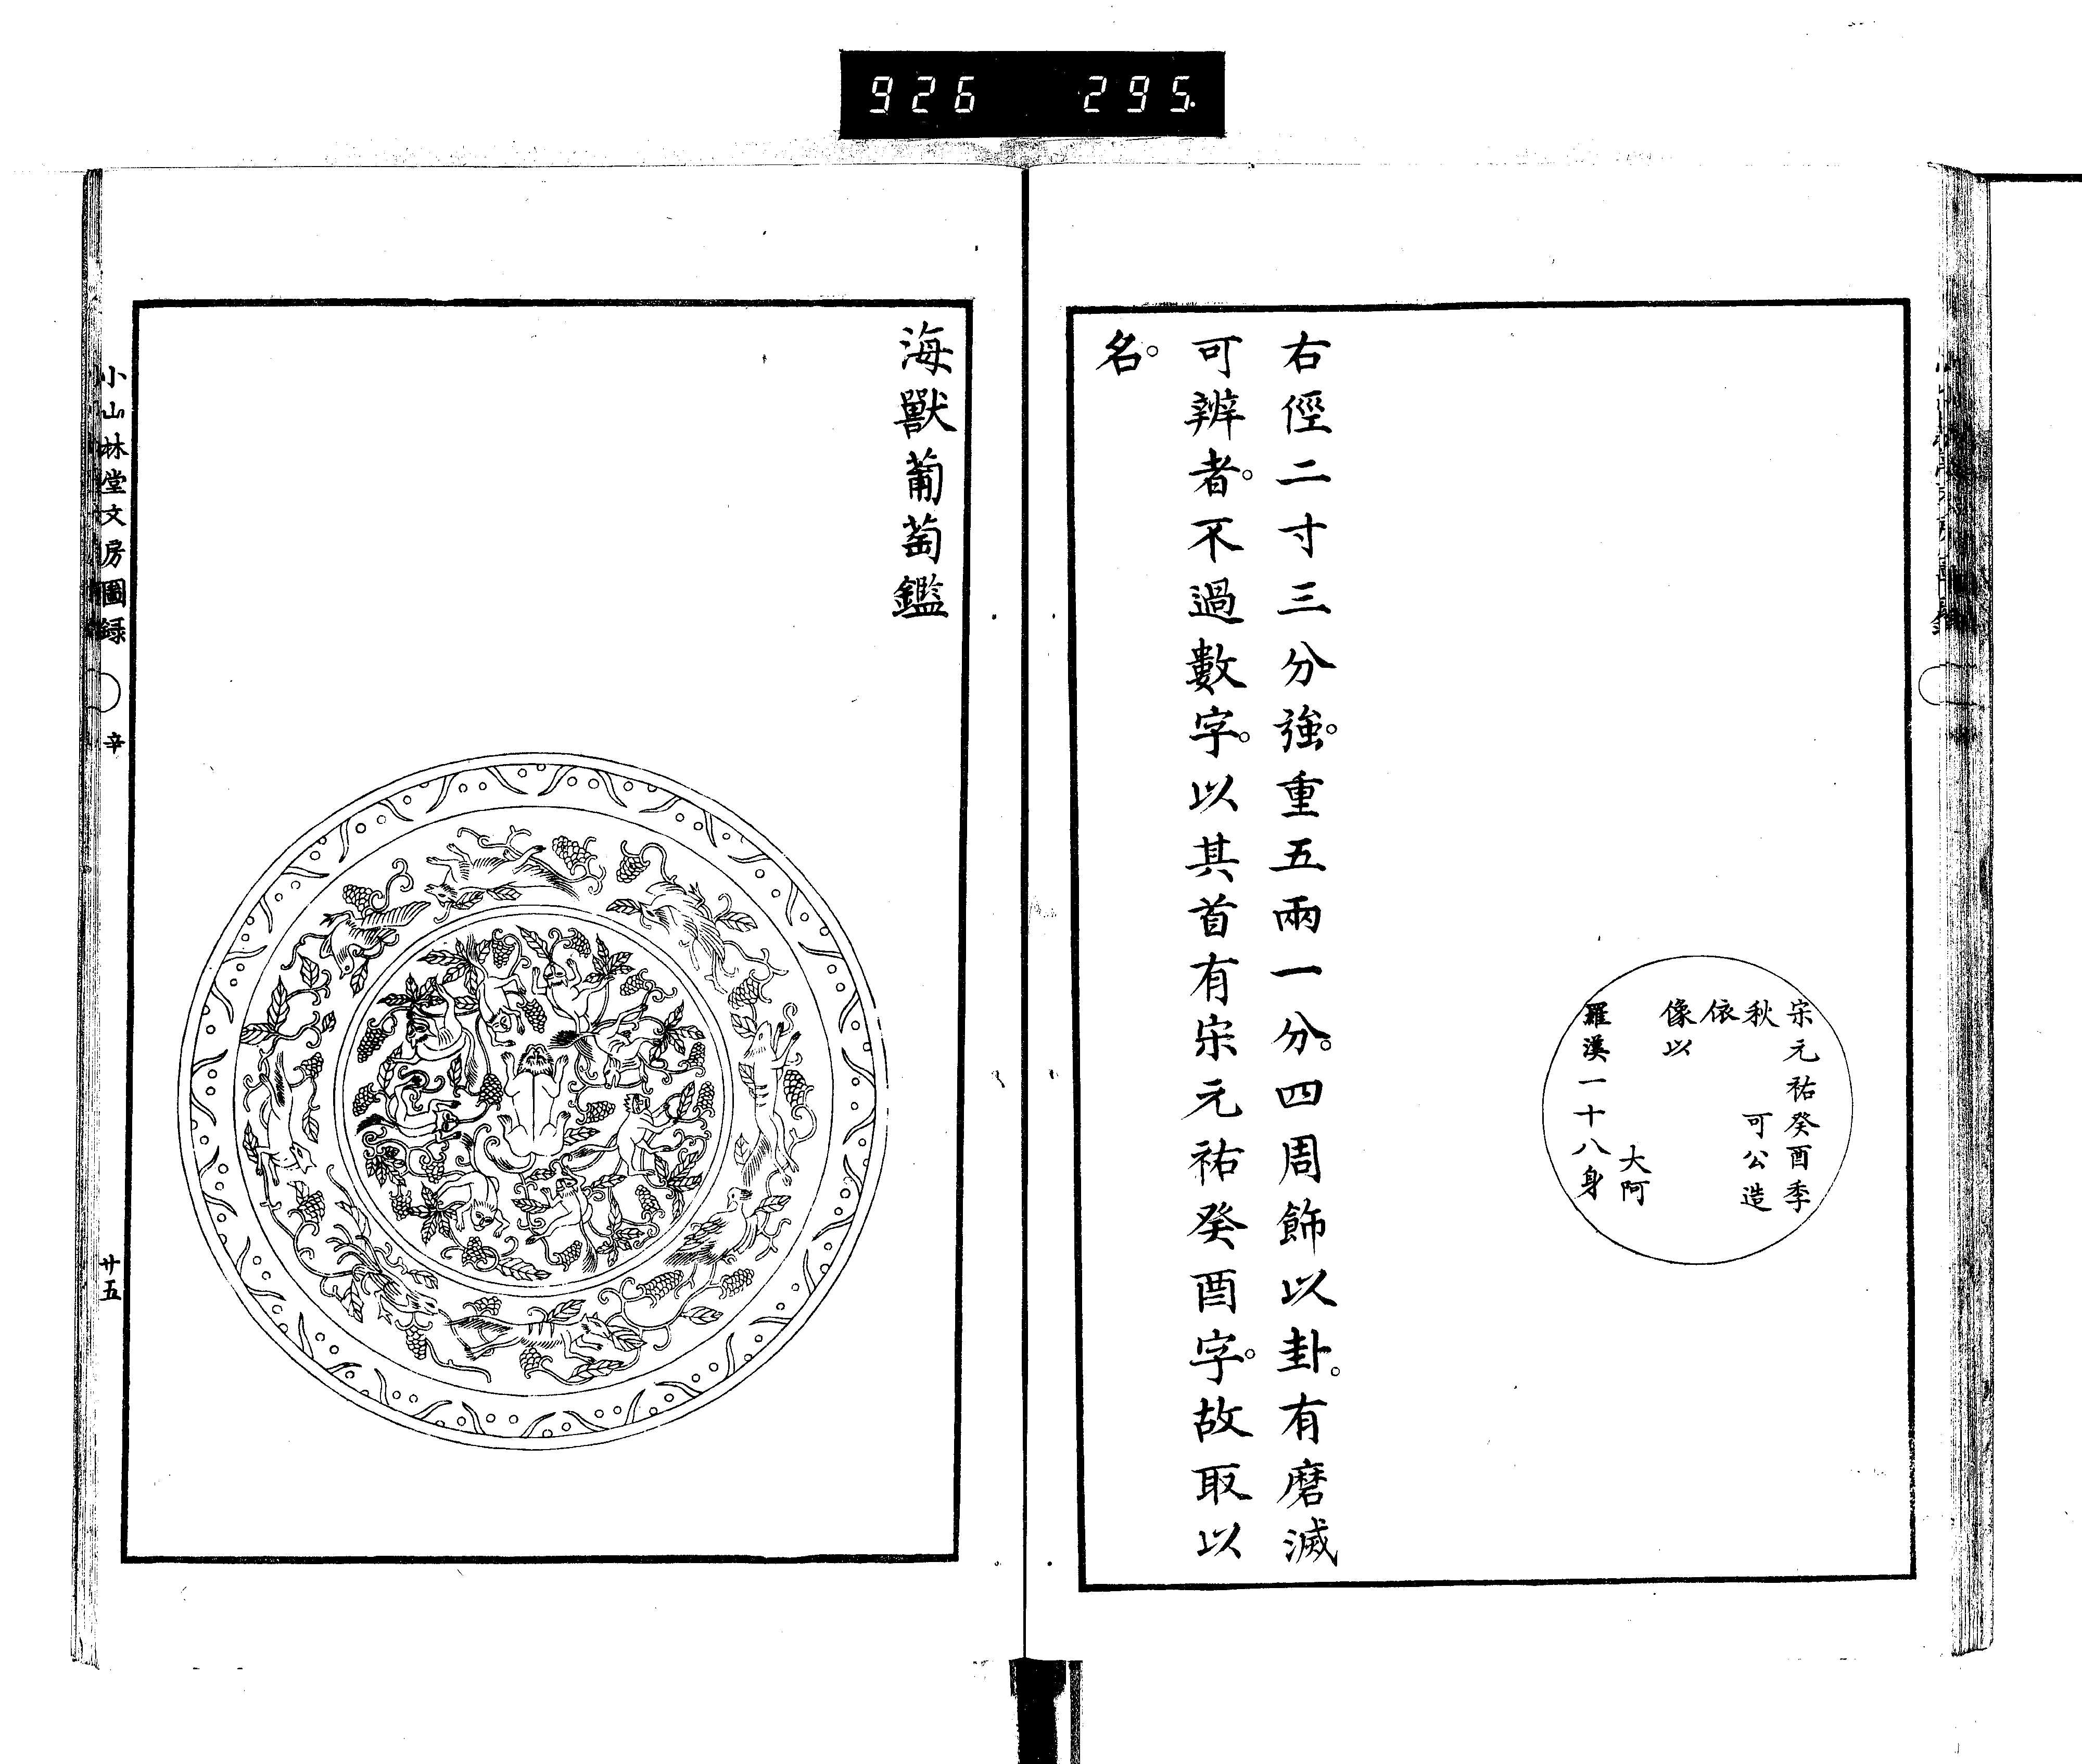 926 295.
宋元祐癸酉季
秋 可公造
依
像以
大阿
羅漢一十八身
右徑二寸三分強。重五兩一分。四周飾以卦。有磨滅
可辨者。不過數字。以其首有宋元祐癸酉字。故取以
名。
海獸葡萄鑑
小山林堂文房圖録 辛 廿五